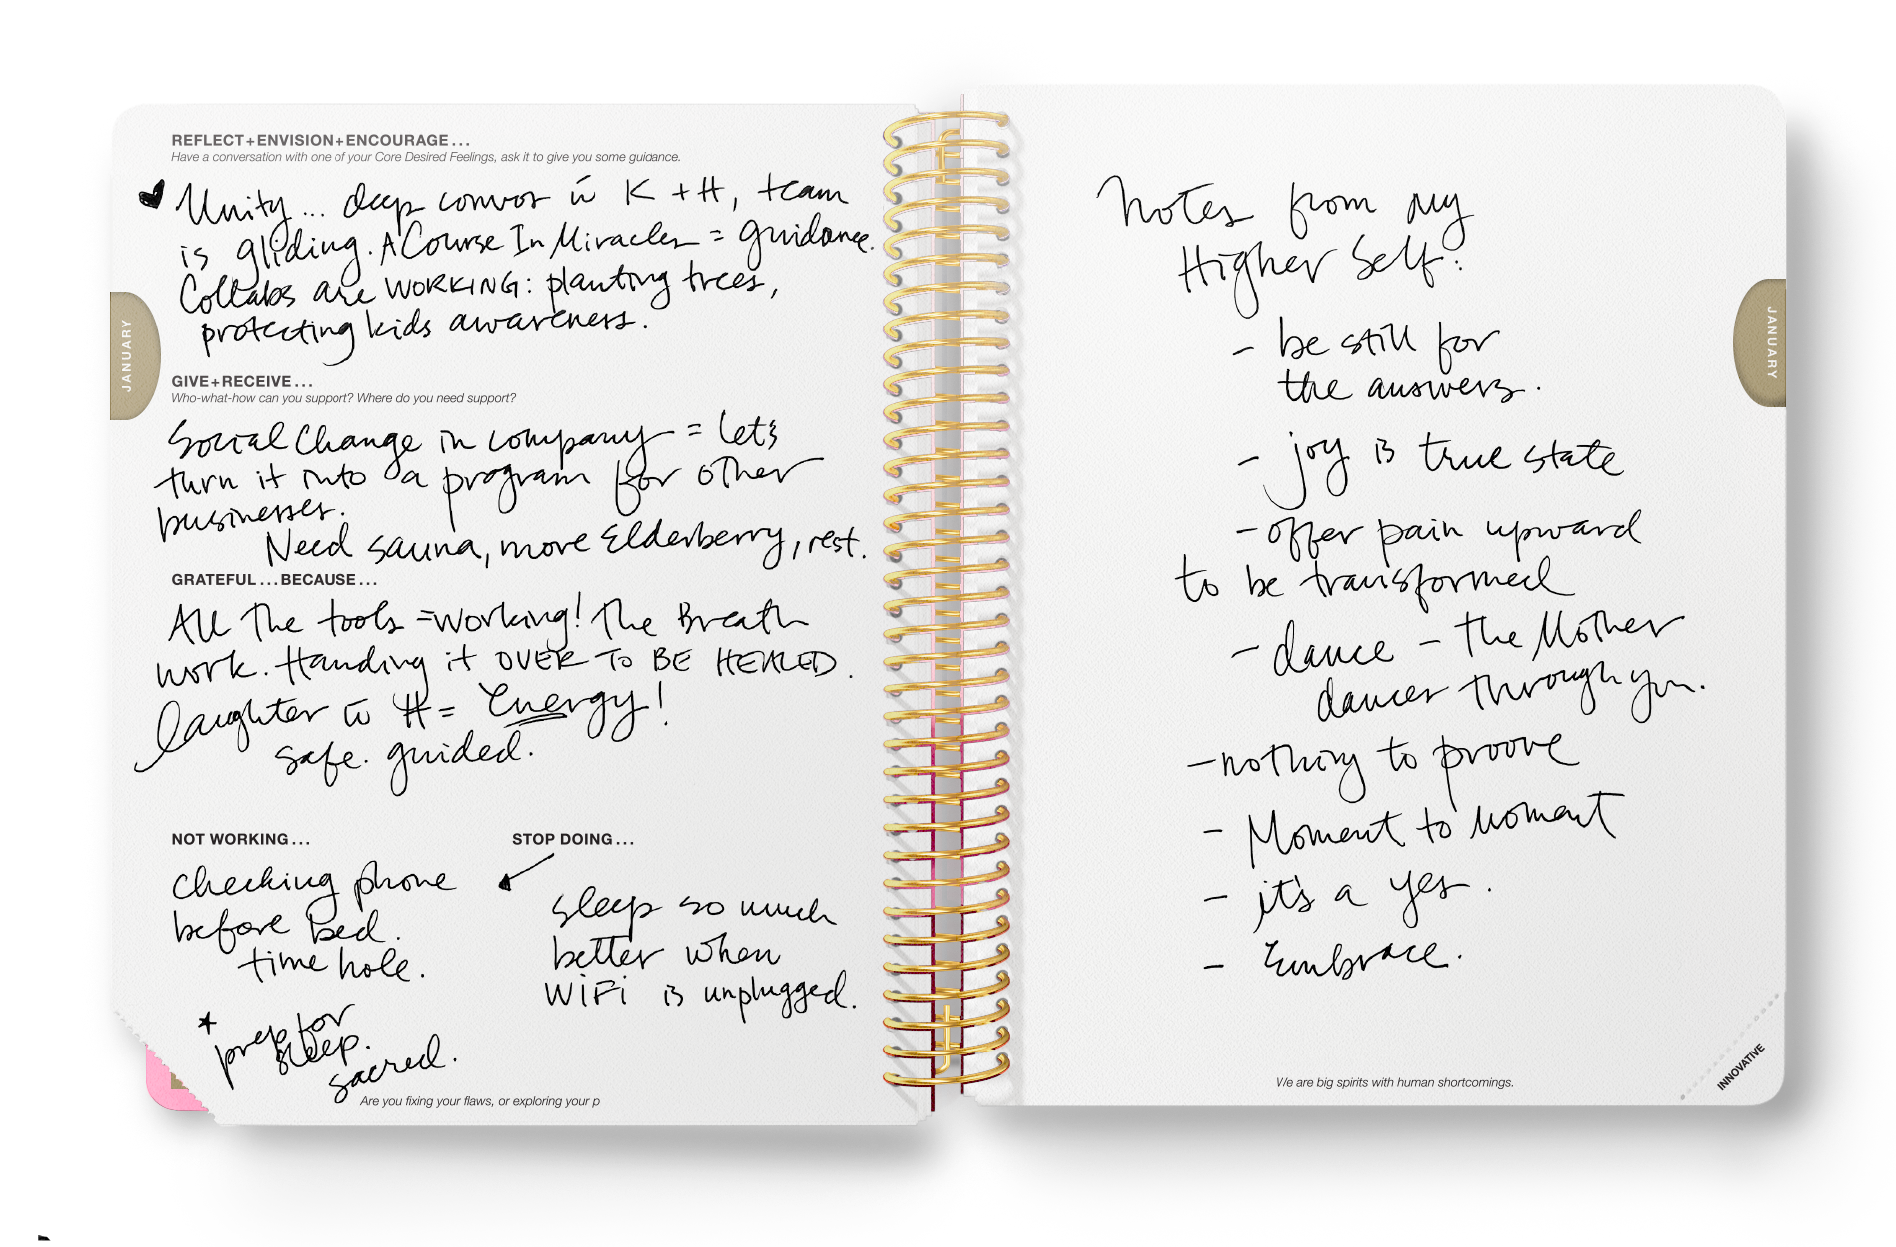 REFLECT+ENVISION+ENCOURAGE...
Have a conversation with one of your Core Desired Feelings, ask it to give you some guidance.
♥ Unity... deep convos w̄ K + H, team
is gliding. A Course In Miracles = guidance.
Collabs are WORKING: planting trees,
protecting kids awareness.
JANUARY
GIVE+RECEIVE...
Who-what-how can you support? Where do you need support?
Social Change in company = let's
turn it into a program for other
businesses.
Need sauna, more Elderberry, rest.
GRATEFUL...BECAUSE...
All the tools =working! The Breath
work. Handing it OVER TO BE HEALED.
laughter w̄ H = Energy!
safe. guided.
NOT WORKING...
checking phone
before bed.
time hole.
* prep for
sleep.
sacred.
STOP DOING...
sleep so much
better when
WiFi is unplugged.
Are you fixing your flaws, or exploring your p
Notes from my
Higher Self:
- be still for
the answers.
- joy is true state
- offer pain upward
to be transformed
- dance - the Mother
dances through you.
- nothing to proove
- Moment to Moment
- it's a yes.
- Embrace.
JANUARY
We are big spirits with human shortcomings.
INNOVATIVE